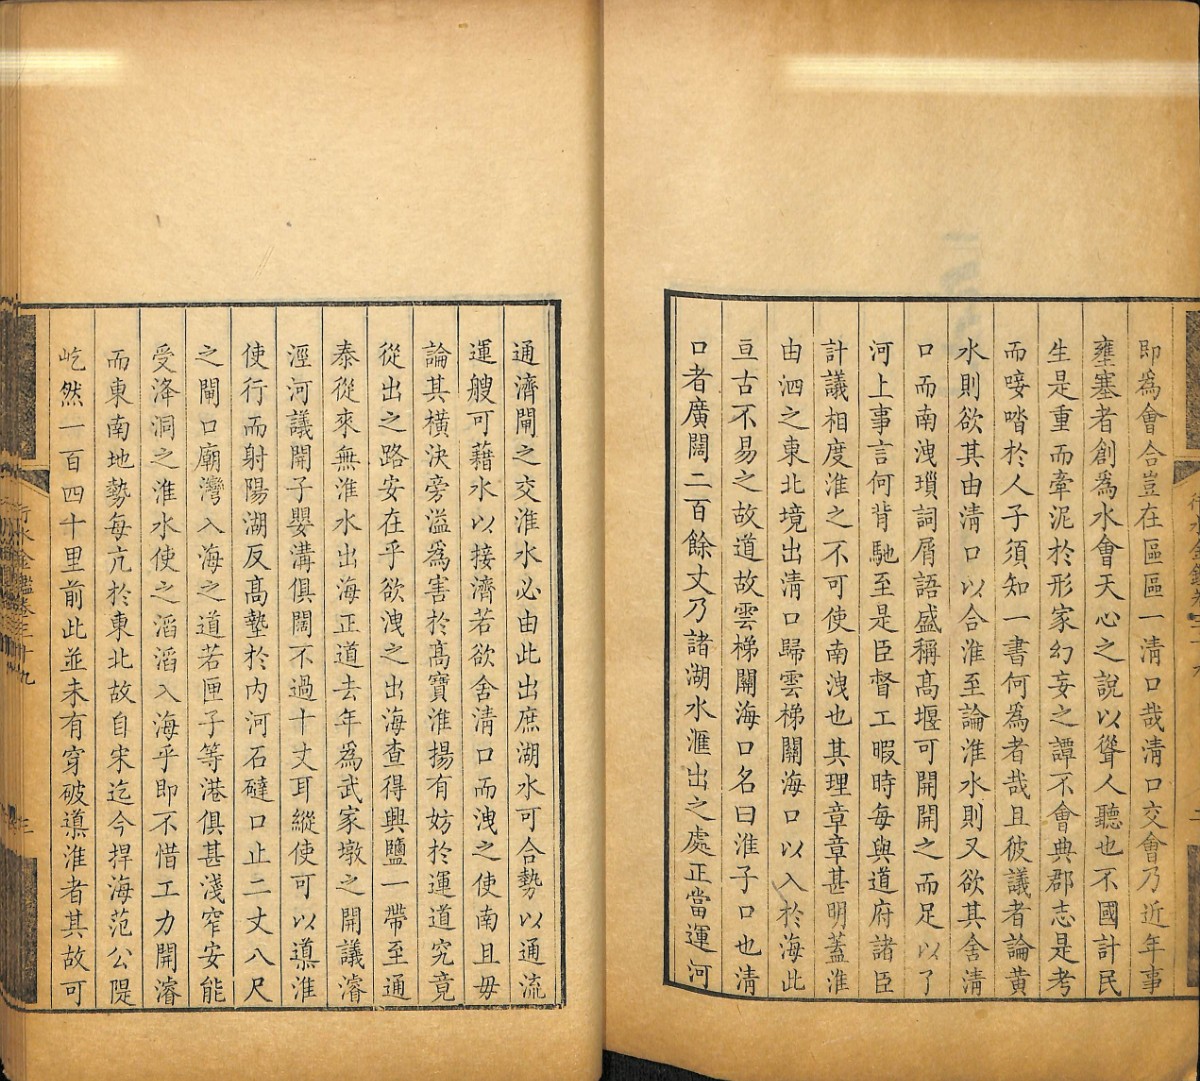 即爲會合豈在區區一清口哉清口交會乃近年事
壅塞者創爲水會天心之說以聳人聽也不國計民
生是重而牽泥於形家幻妄之譚不會典郡志是考
而唼喒於人子須知一書何爲者哉且彼議者論黃
水則欲其由清口以合淮至論淮水則又欲其舍清
口而南洩瑣詞屑語盛稱高堰可開開之而足以了
河上事言何背馳至是臣督工暇時每與道府諸臣
計議相度淮之不可使南洩也其理章章甚明蓋淮
由泗之東北境出清口歸雲梯關海口以入於海此
亘古不易之故道故雲梯關海口名曰淮子口也清
口者廣闊二百餘丈乃諸湖水滙出之處正當運河
通濟閘之交淮水必由此出庶湖水可合勢以通流
運艘可藉水以接濟若欲舍清口而洩之使南且毋
論其橫決旁溢爲害於高寶淮揚有妨於運道究竟
從出之路安在乎欲洩之出海查得興鹽一帶至通
泰從來無淮水出海正道去年爲武家墩之開議濬
涇河議開子嬰溝俱闊不過十丈耳縱使可以導淮
使行而射陽湖反高墊於內河石䃮口止二丈八尺
之閘口廟灣入海之道若匣子等港俱甚淺窄安能
受洚洞之淮水使之滔滔入海乎即不惜工力開濬
而東南地勢每亢於東北故自宋迄今捍海范公隄
屹然一百四十里前此並未有穿破導淮者其故可
行水金鑑卷三十九
三